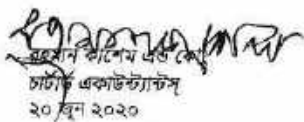 রহমান কাশেম এন্ড কোং
চার্টার্ড একাউন্ট্যান্টস্
২০ জুন ২০২০